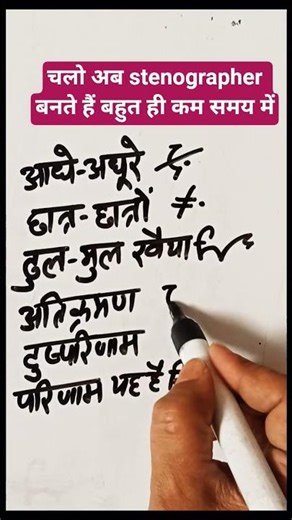 चलो अब stenographer
बनते हैं बहुत ही कम समय में
आधे-अधूरे
छात्र-छात्रों
ढुल-मुल रवैया
अतिक्रमण
दुष्परिणाम
परिणाम यह है